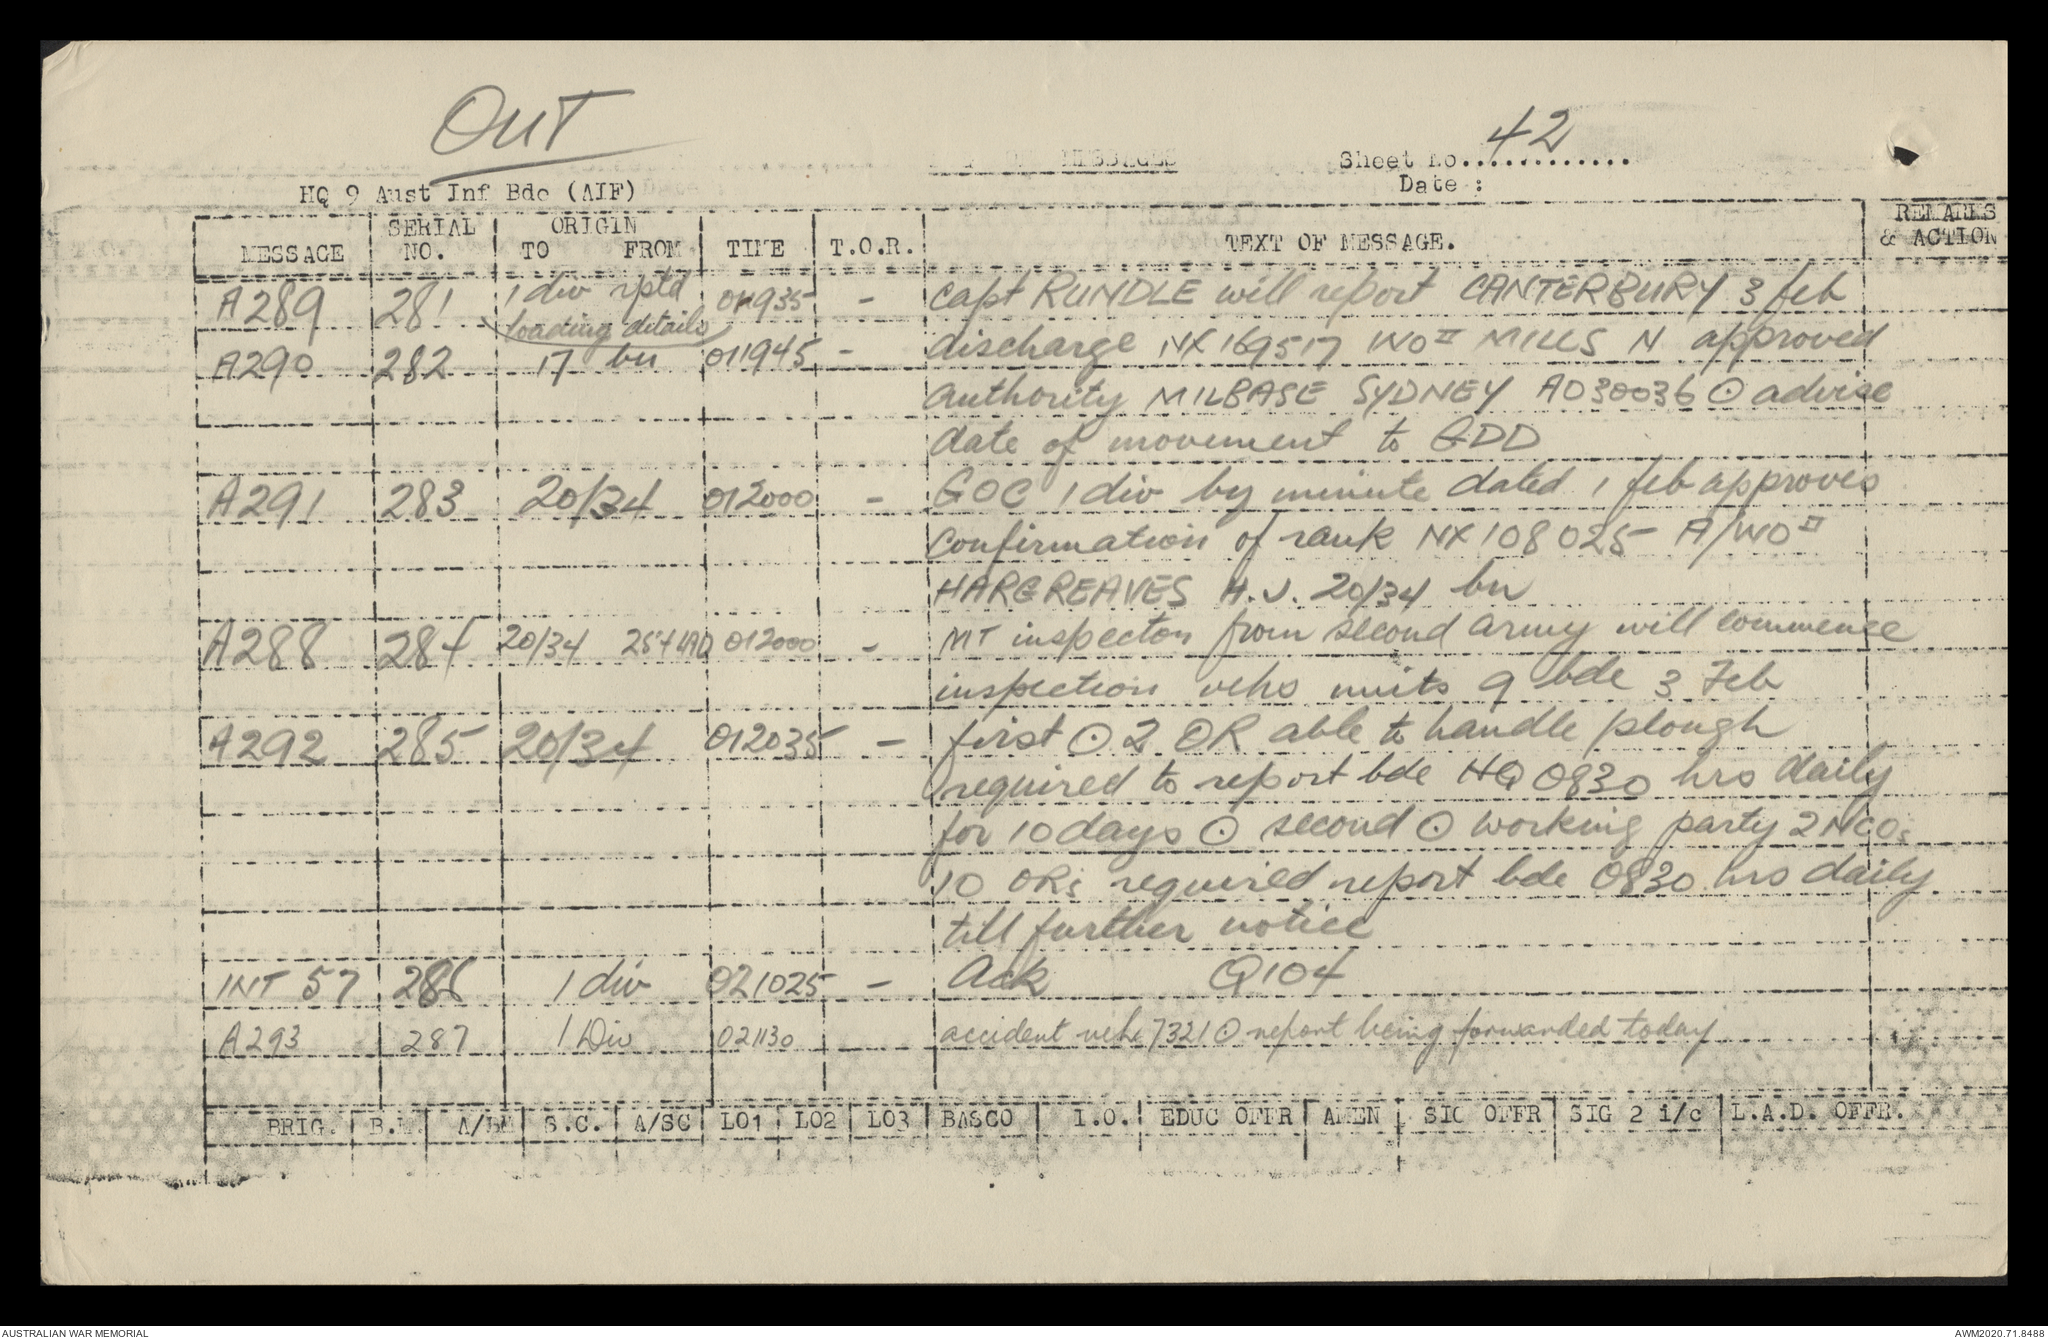 OUT
MESSAGES
Sheet No............. 42
Date :
HQ 9 Aust Inf Bde (AIF)
MESSAGE SERIAL NO. ORIGIN TO FROM TIME T.O.R. TEXT OF MESSAGE. REMARKS & ACTION
A289 281 1 div rptd loading details 011935 - Capt RUNDLE will report CANTERBURY 3 feb
A290 282 17 bn 011945 - discharge NX169517 WO II MILLS N approved
authority MILBASE SYDNEY AD30036 ⊙ advise
date of movement to GDD
A291 283 20/34 012000 - GOC 1 div by minute dated 1 feb approves
confirmation of rank NX108025 A/WO II
HARGREAVES H.J. 20/34 bn
A288 284 20/34 254 LAD 012000 - MT inspectors from second army will commence
inspection vehs units 9 bde 3 Feb
A292 285 20/34 012035 - first ⊙ 2 OR able to handle plough
required to report bde HQ 0830 hrs daily
for 10 days ⊙ second ⊙ working party 2 NCOs
10 ORs required report bde 0830 hrs daily
till further notice
INT 57 286 1 div 021025 - Ack Q104
A293 287 1 Div 021130 accident veh 7321 ⊙ report being forwarded today
BRIG. B.M. A/BM S.C. A/SC LO1 LO2 LO3 BASCO I.O. EDUC OFFR AMEN SIG OFFR SIG 2 i/c L.A.D. OFFR.
AUSTRALIAN WAR MEMORIAL AWM2020.71.8488